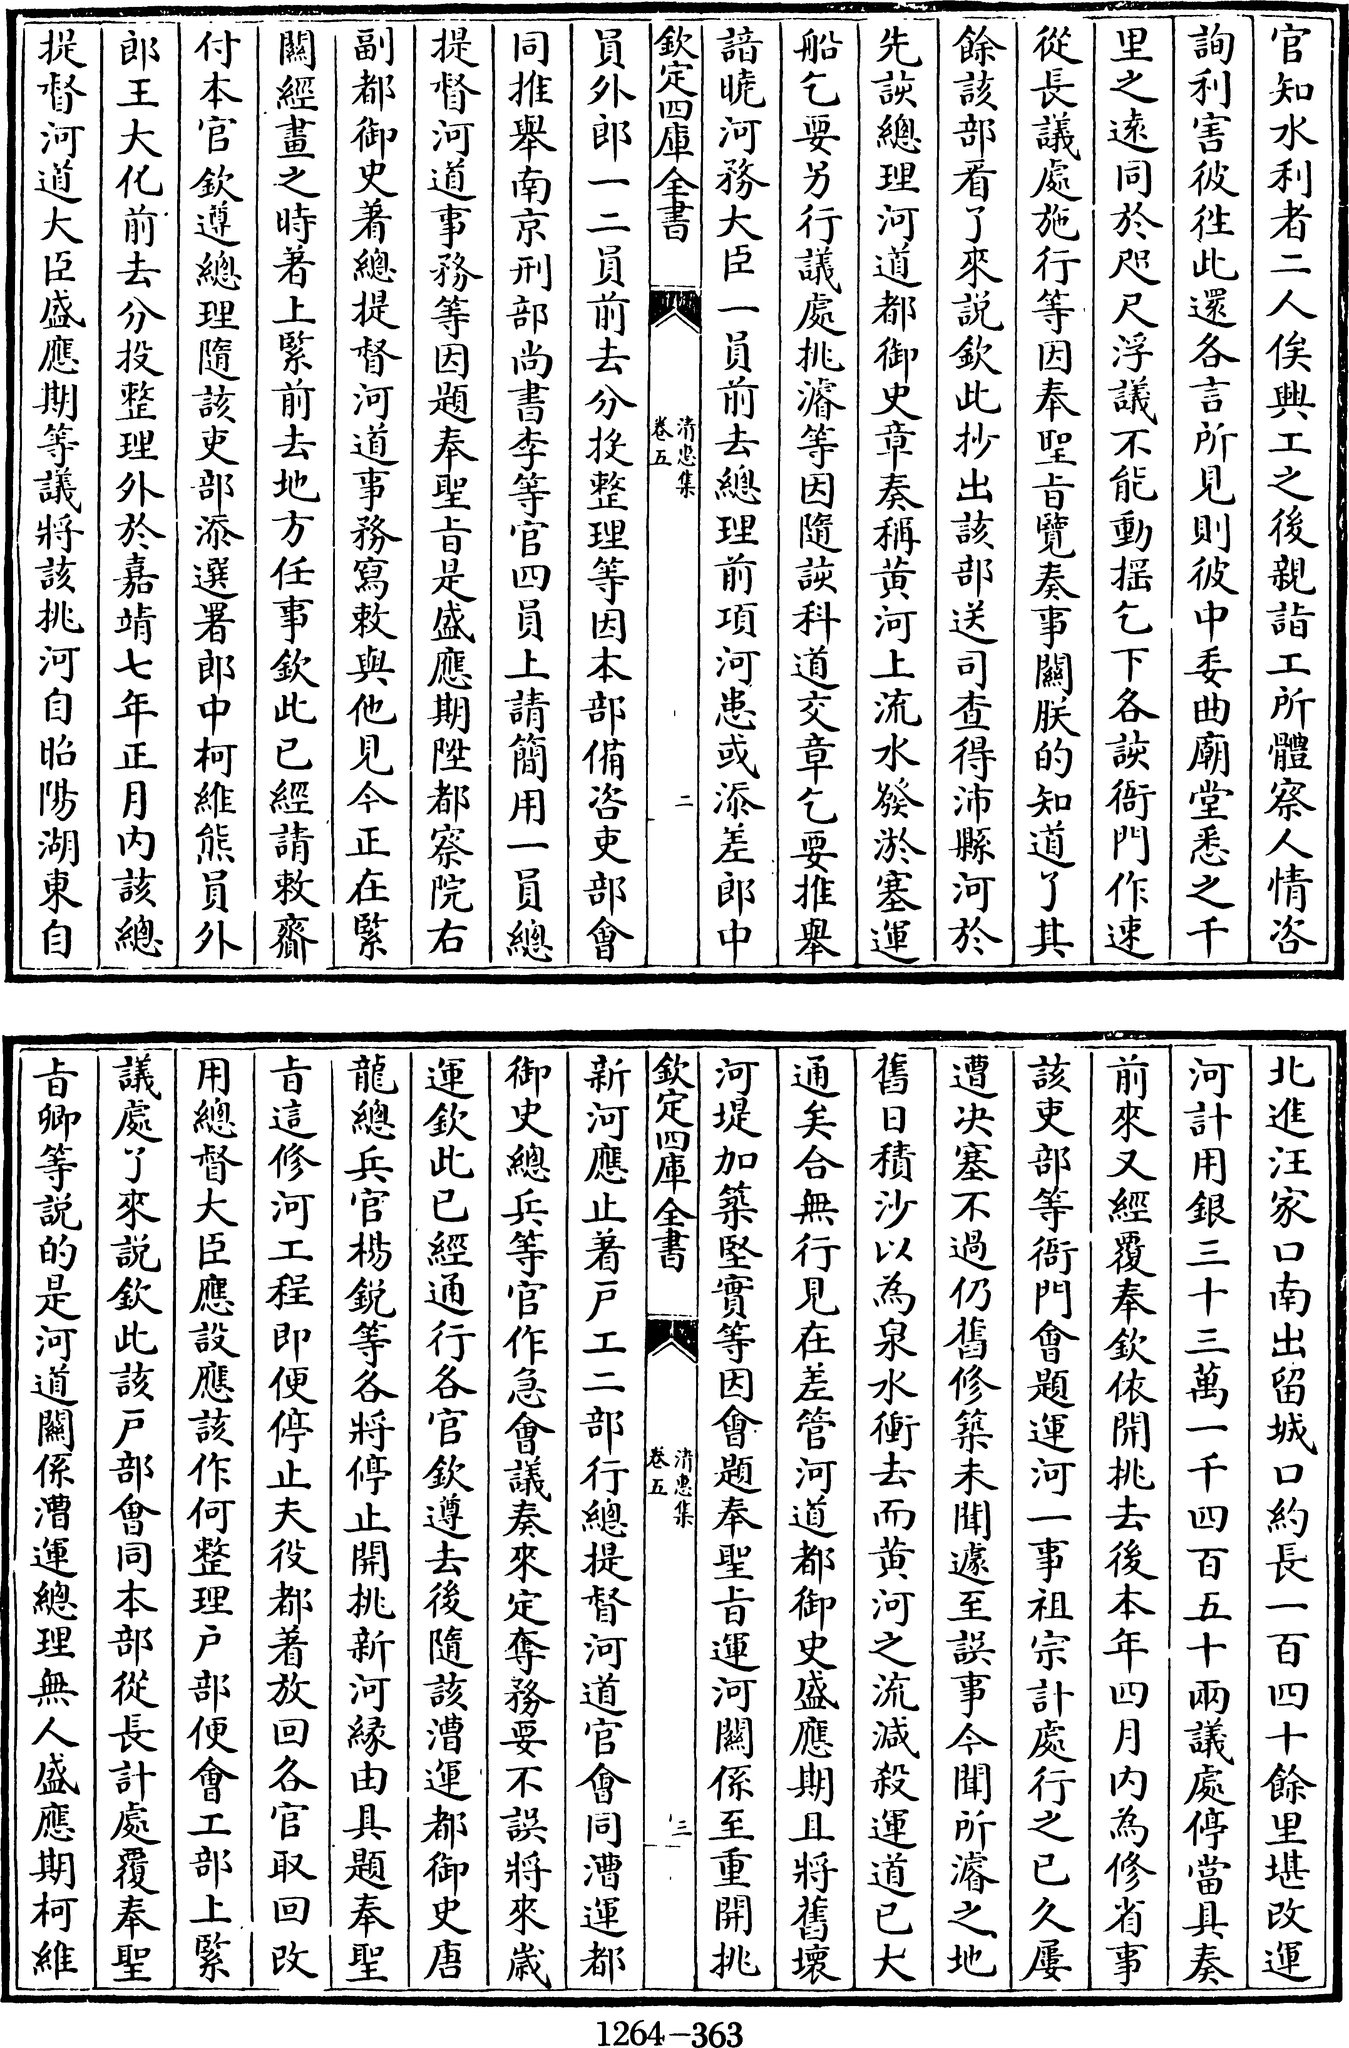 官知水利者二人俟興工之後親詣工所體察人情咨
詢利害彼徃此還各言所見則彼中委曲廟堂悉之千
里之遠同於咫尺浮議不能動揺乞下各該衙門作速
從長議處施行等因奉聖旨覽奏事關朕的知道了其
餘該部看了來説欽此抄出該部送司查得沛縣河於
先該總理河道都御史章奏稱黄河上流水發淤塞運
船乞要另行議處挑濬等因隨該科道交章乞要推舉
諳曉河務大臣一員前去總理前項河患或添差郎中
欽定四庫全書
清惠集
卷五
二
員外郎一二員前去分投整理等因本部備咨吏部會
同推舉南京刑部尚書李等官四員上請簡用一員總
提督河道事務等因題奉聖旨是盛應期陞都察院右
副都御史著總提督河道事務寫敕與他見今正在緊
關經畫之時著上緊前去地方任事欽此已經請敕齎
付本官欽遵總理隨該吏部添選署郎中柯維熊員外
郎王大化前去分投整理外於嘉靖七年正月内該總
提督河道大臣盛應期等議將該挑河自昭陽湖東自
北進汪家口南出留城口約長一百四十餘里堪改運
河計用銀三十三萬一千四百五十兩議處停當具奏
前來又經覆奉欽依開挑去後本年四月内為修省事
該吏部等衙門會題運河一事祖宗計處行之已久屢
遭决塞不過仍舊修築未聞遽至誤事今聞所濬之地
舊日積沙以為泉水衝去而黄河之流減殺運道已大
通矣合無行見在差管河道都御史盛應期且將舊壞
河堤加築堅實等因會題奉聖旨運河關係至重開挑
欽定四庫全書
清惠集
卷五
三
新河應止着戸工二部行總提督河道官會同漕運都
御史總兵等官作急會議奏來定奪務要不誤將來歲
運欽此已經通行各官欽遵去後隨該漕運都御史唐
龍總兵官楊鋭等各將停止開挑新河縁由具題奉聖
旨這修河工程即便停止夫役都着放回各官取回改
用總督大臣應設應該作何整理户部便會工部上緊
議處了來説欽此該戸部會同本部從長計處覆奉聖
旨卿等説的是河道關係漕運總理無人盛應期柯維
1264-363